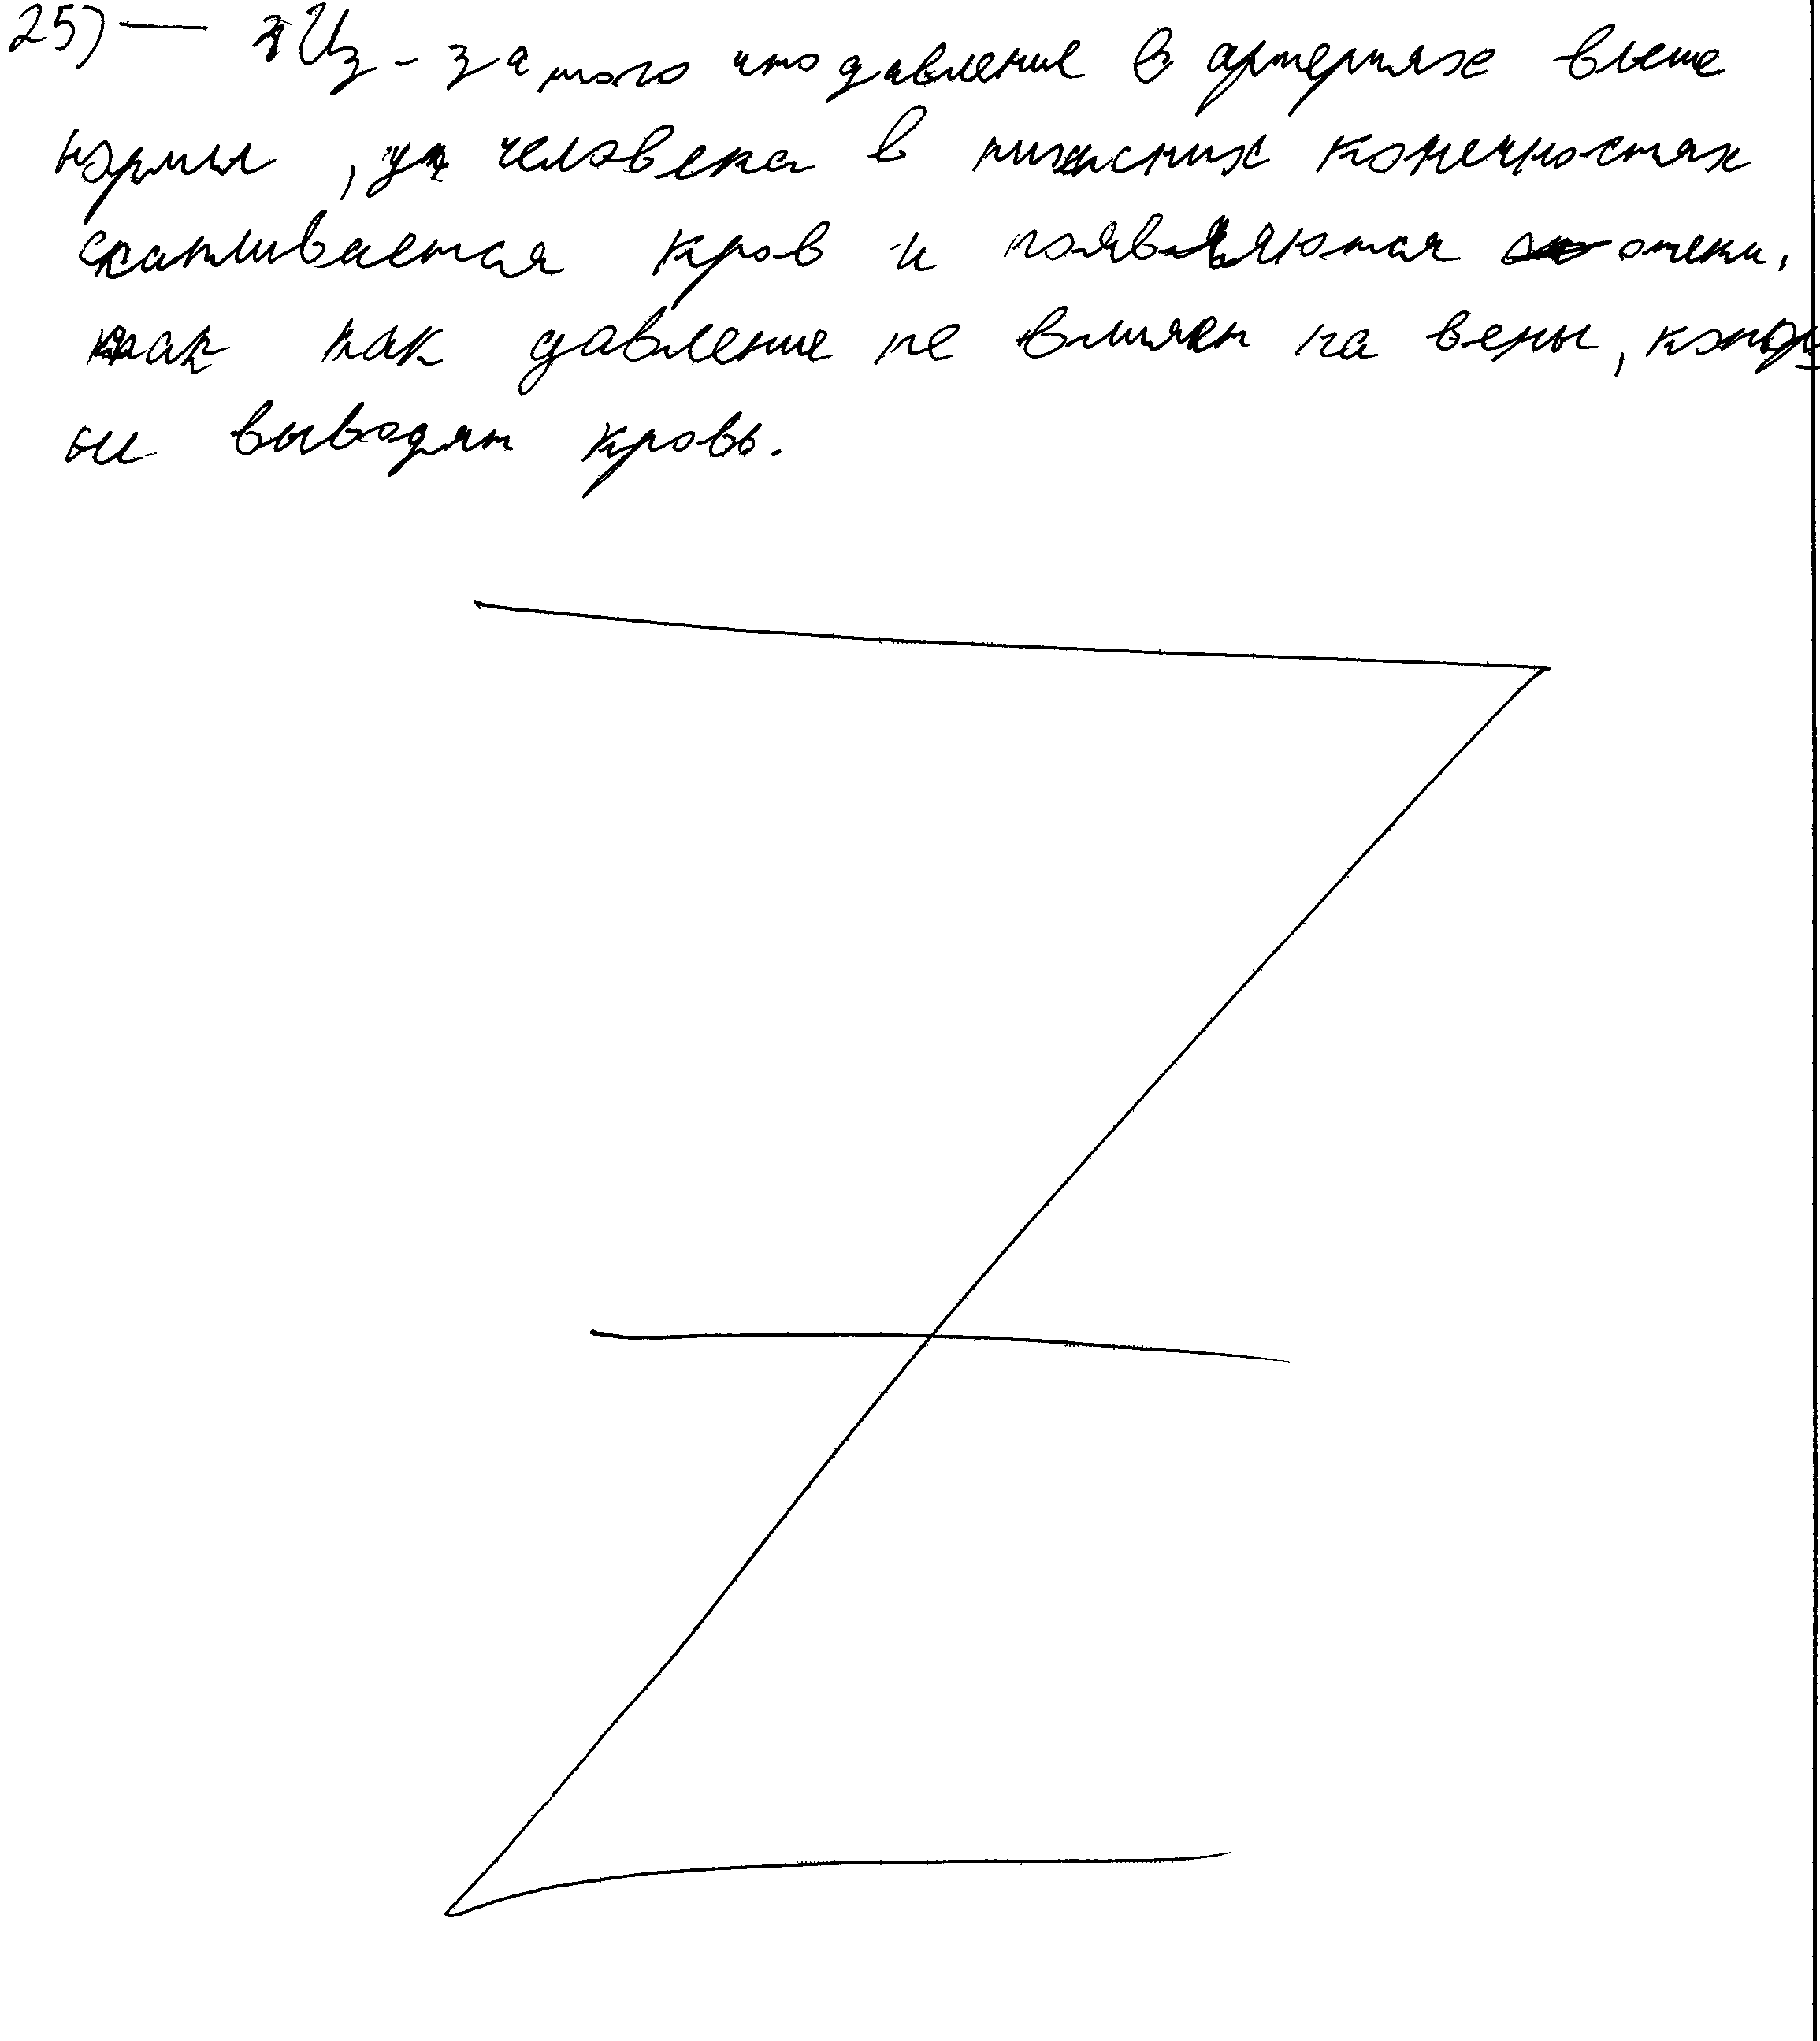 25) — Из-за того что давление в артериях выше
нормы, у человека в нижних конечностях
скапливается кров и появляются отеки,
так как давление не влияет на вены, котор
ые выводят кровь.